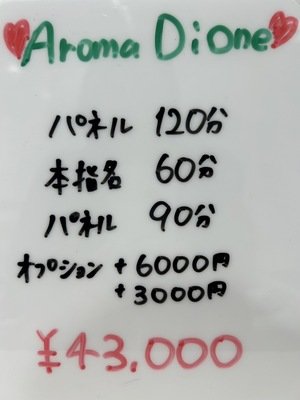 Aroma Dione
パネル 120分
本指名 60分
パネル 90分
オプション +6000円
+3000円
¥43.000